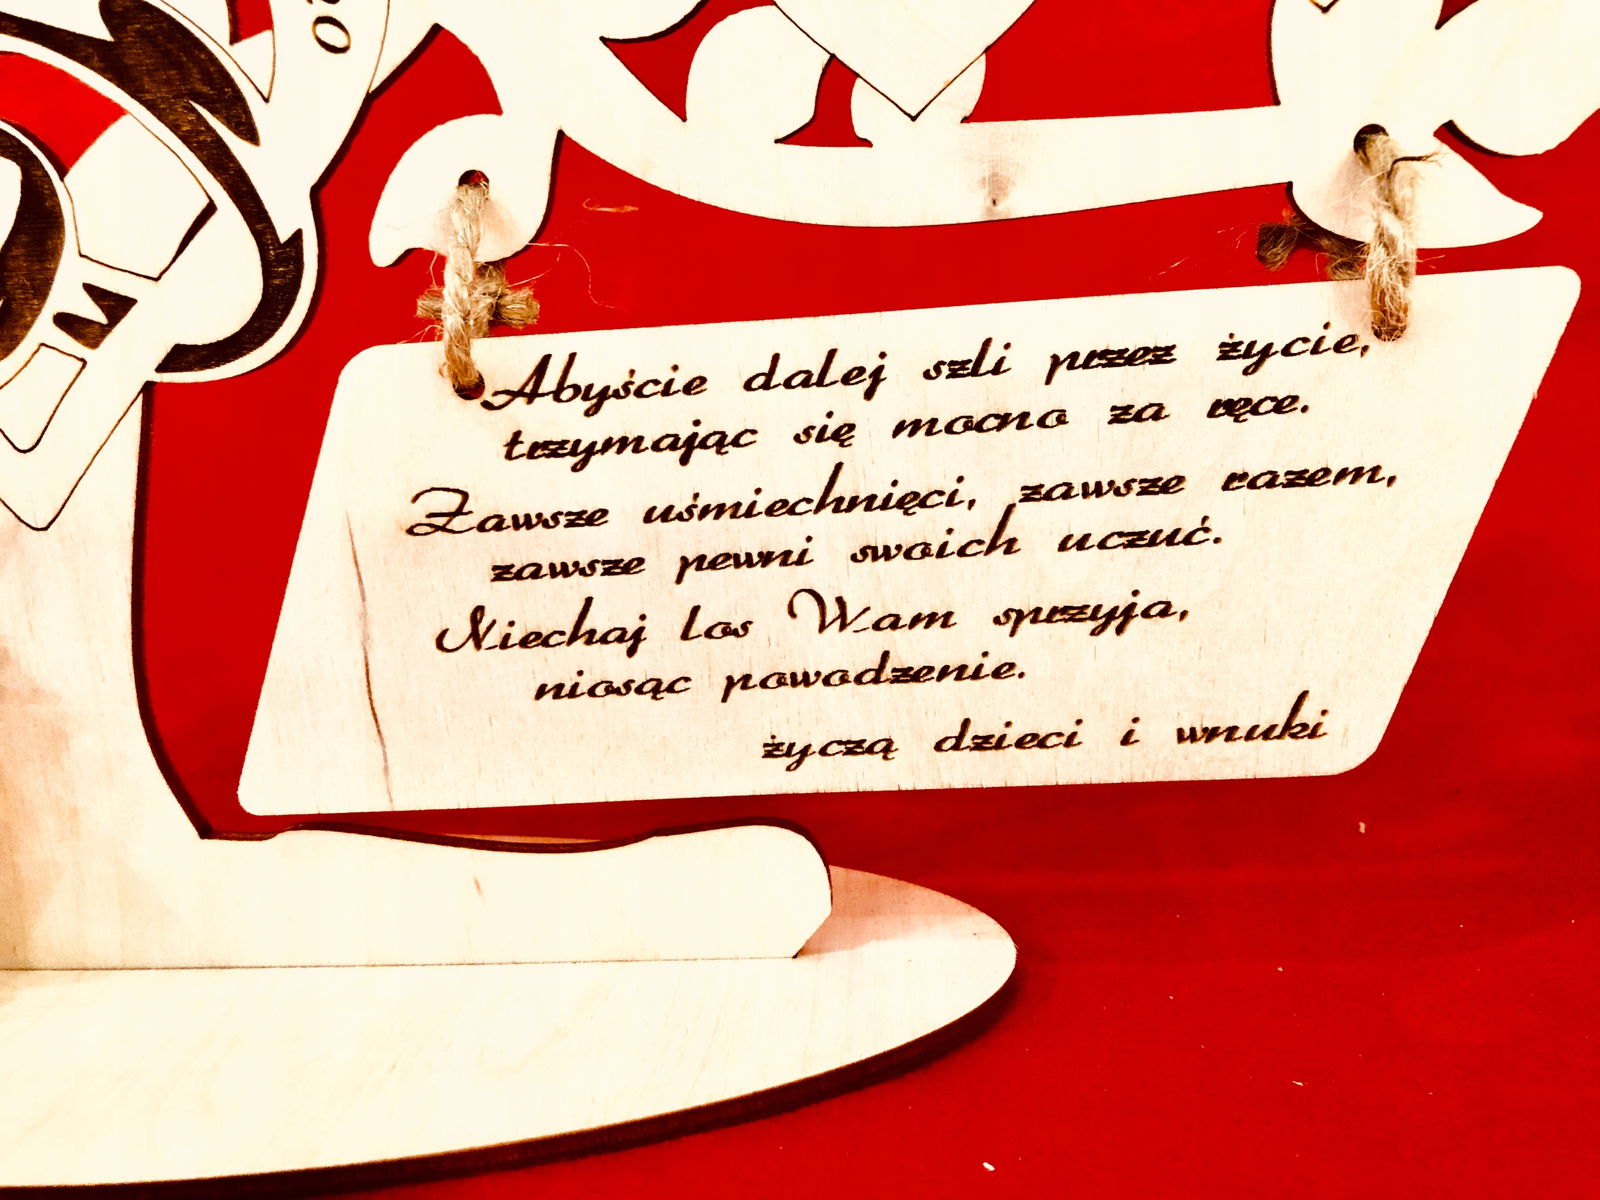 Abyście dalej szli przez życie,
trzymając się mocno za ręce.
Zawsze uśmiechnięci, zawsze razem,
zawsze pewni swoich uczuć.
Niechaj los Wam sprzyja,
niosąc powodzenie.
życzą dzieci i wnuki